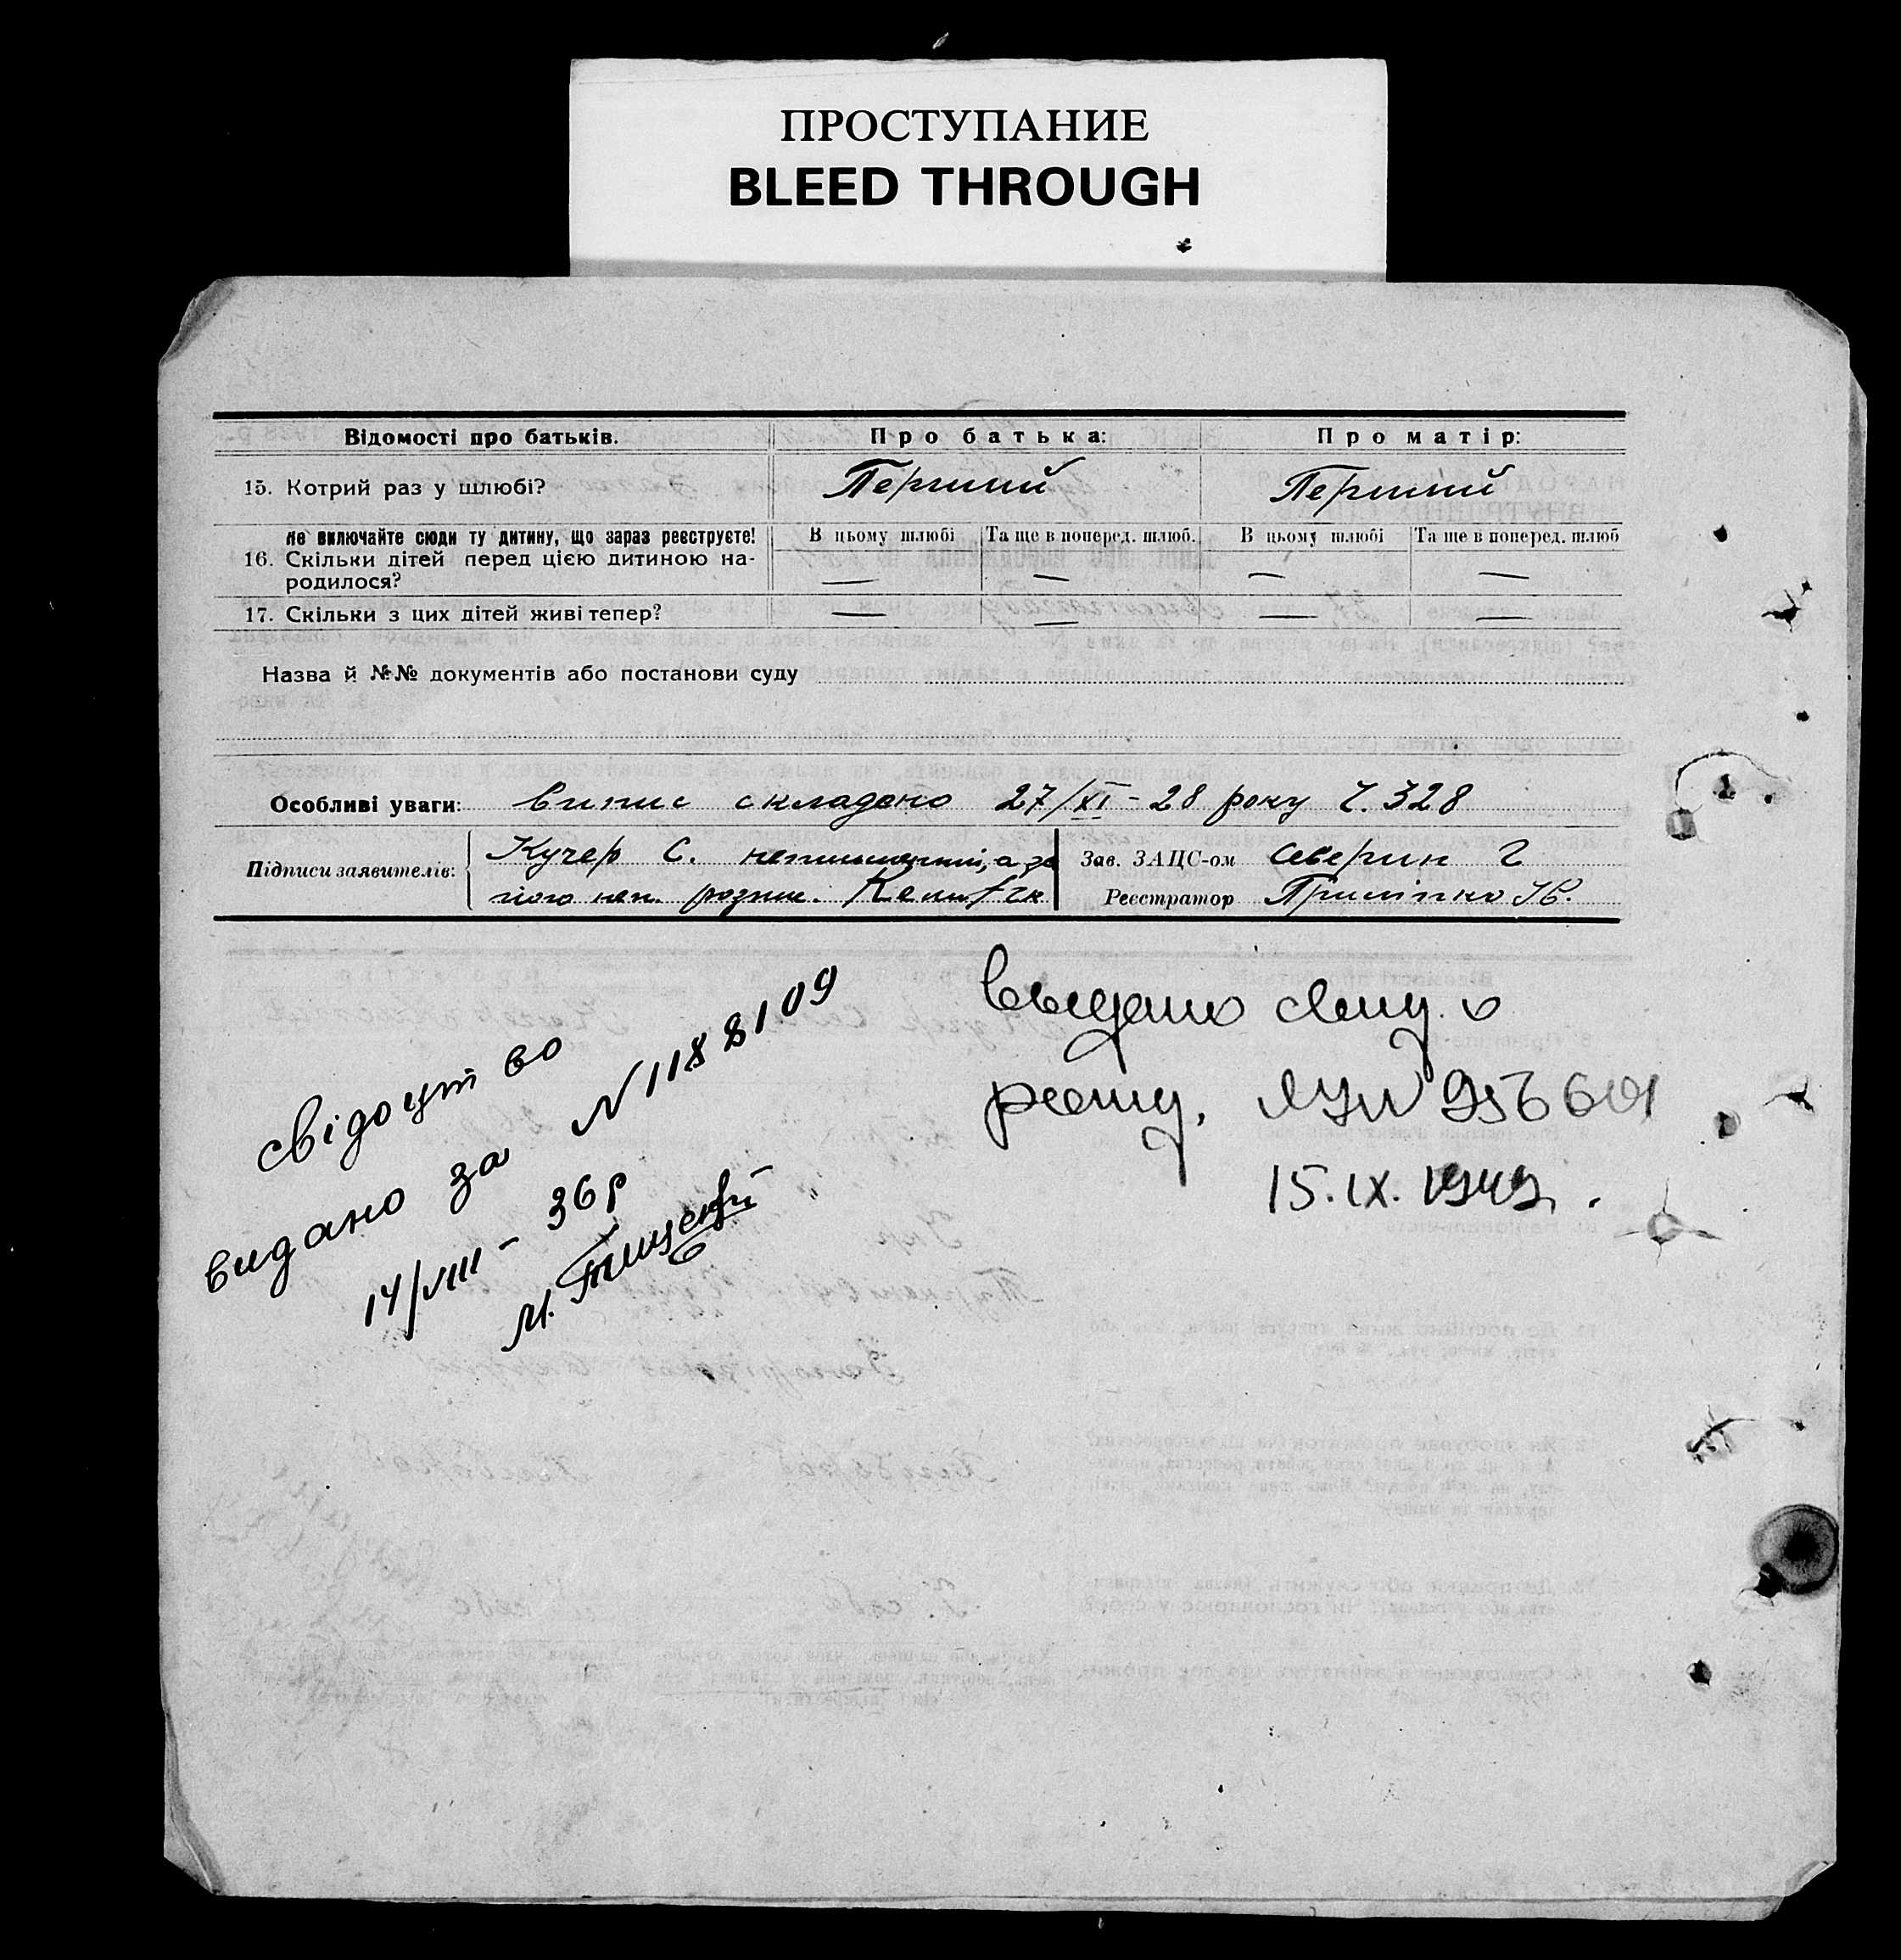 ПРОСТУПАНИЕ
BLEED THROUGH
Відомості про батьків. Про батька: Про матір:
15. Котрий раз у шлюбі? Перший Перший
не включайте сюди ту дитину, що зараз реєструєте! В цьому шлюбі Та ще в поперед. шлюб. В цьому шлюбі Та ще в поперед. шлюб
16. Скільки дітей перед цією дитиною на-
родилося? — — — —
17. Скільки з цих дітей живі тепер? — — — —
Назва й №№ документів або постанови суду
Особливі уваги: Випис складено 27/XI - 28 року Ч. 328
Підписи заявителів: Кучер С. неписьменний, а за
його неп. розпис.
Зав. ЗАЦС-ом Северин Г
Реєстратор
свідоцтво
видано за N 1188109
14/VIII - 36 р
М.
выдано
15.IX.1949.